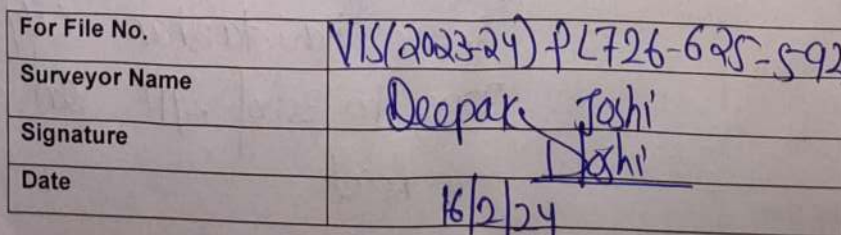 For File No. VIS(2023-24)-PL726-625-592
Surveyor Name Deepak Joshi
Signature DJoshi
Date 16/2/24